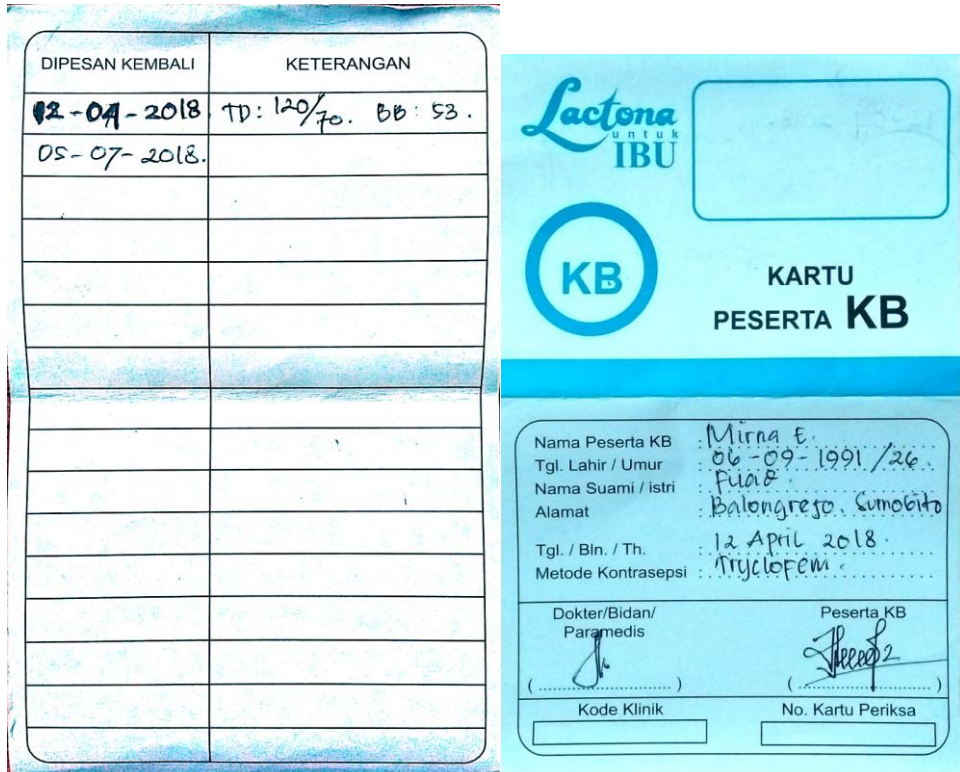 DIPESAN KEMBALI KETERANGAN
12-04-2018. TD: 120/70. BB: 53.
05-07-2018.
Lactona
untuk
IBU
KB
KARTU
PESERTA KB
Nama Peserta KB : Mirna E.
Tgl. Lahir / Umur : 06-09-1991 / 26.
Nama Suami / istri : Fuad.
Alamat : Balongrejo. Sumobito
Tgl. / Bln. / Th. : 12 April 2018.
Metode Kontrasepsi : Tryclofem.
Dokter/Bidan/ Peserta KB
Paramedis
(........................) (........................)
Kode Klinik No. Kartu Periksa